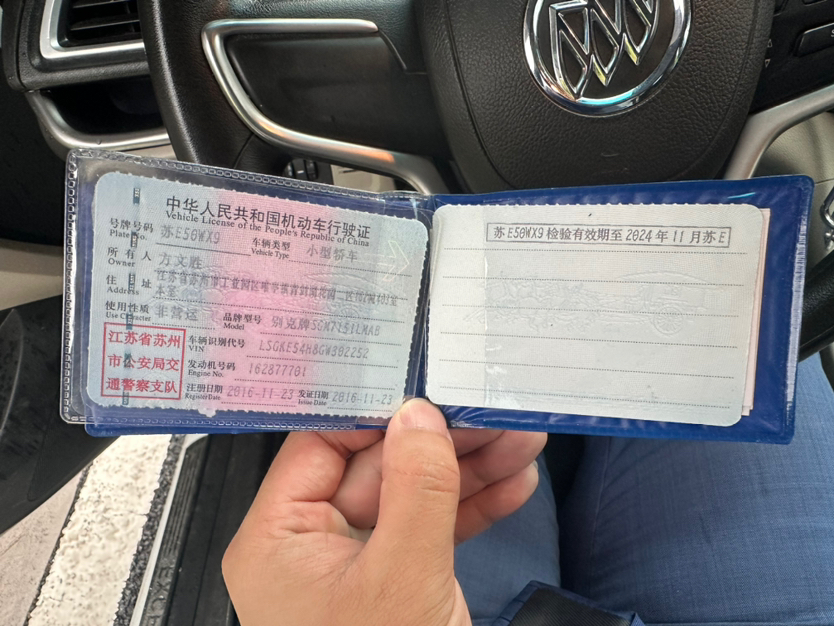 中华人民共和国机动车行驶证
Vehicle License of the People's Republic of China
号牌号码 苏E50WX9 车辆类型 小型轿车
Plate No. Vehicle Type
所有人 方文胜
Owner
住址 江苏省苏州市工业园区
Address
使用性质 非营运 品牌型号 别克牌SGM7151LMAB
Use Character Model
江苏省苏州
市公安局交
通警察支队
车辆识别代号 LSGKE54H8GW302252
VIN
发动机号码 162877701
Engine No.
注册日期 2016-11-23 发证日期 2016-11-23
Register Date Issue Date
苏E50WX9 检验有效期至 2024 年 11 月 苏 E